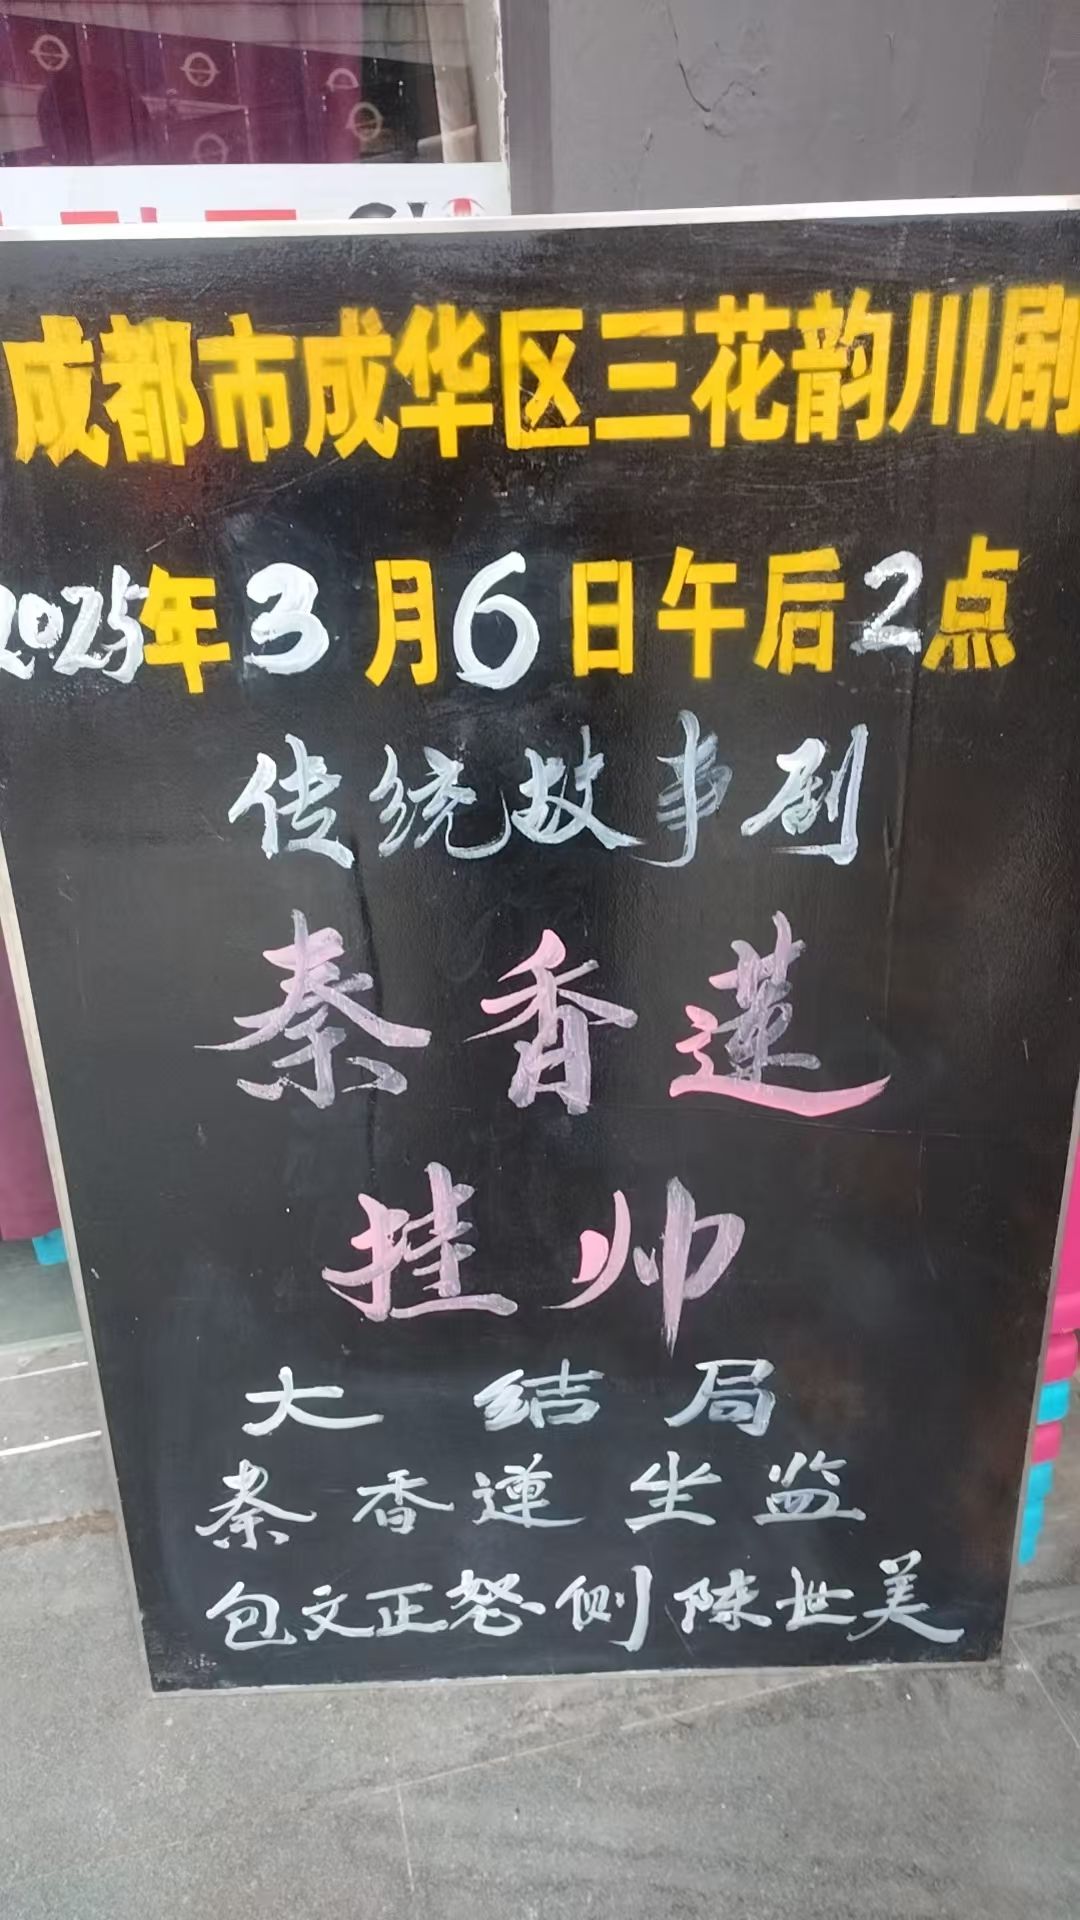 成都市成华区三花韵川剧
2025年3月6日午后2点
传统故事剧
秦香莲
挂帅
大结局
秦香莲坐监
包文正怒侧陈世美